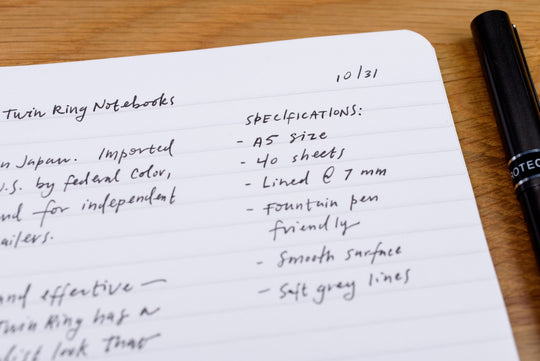 10/31
Twin Ring Notebooks
in Japan. Imported
U.S. by Federal Color,
and for independent
ailers.
and effective —
Twin Ring has a
list look that
Specifications:
- A5 size
- 40 sheets
- Lined @ 7 mm
- Fountain pen
friendly
- Smooth surface
- Soft grey lines
OTEC